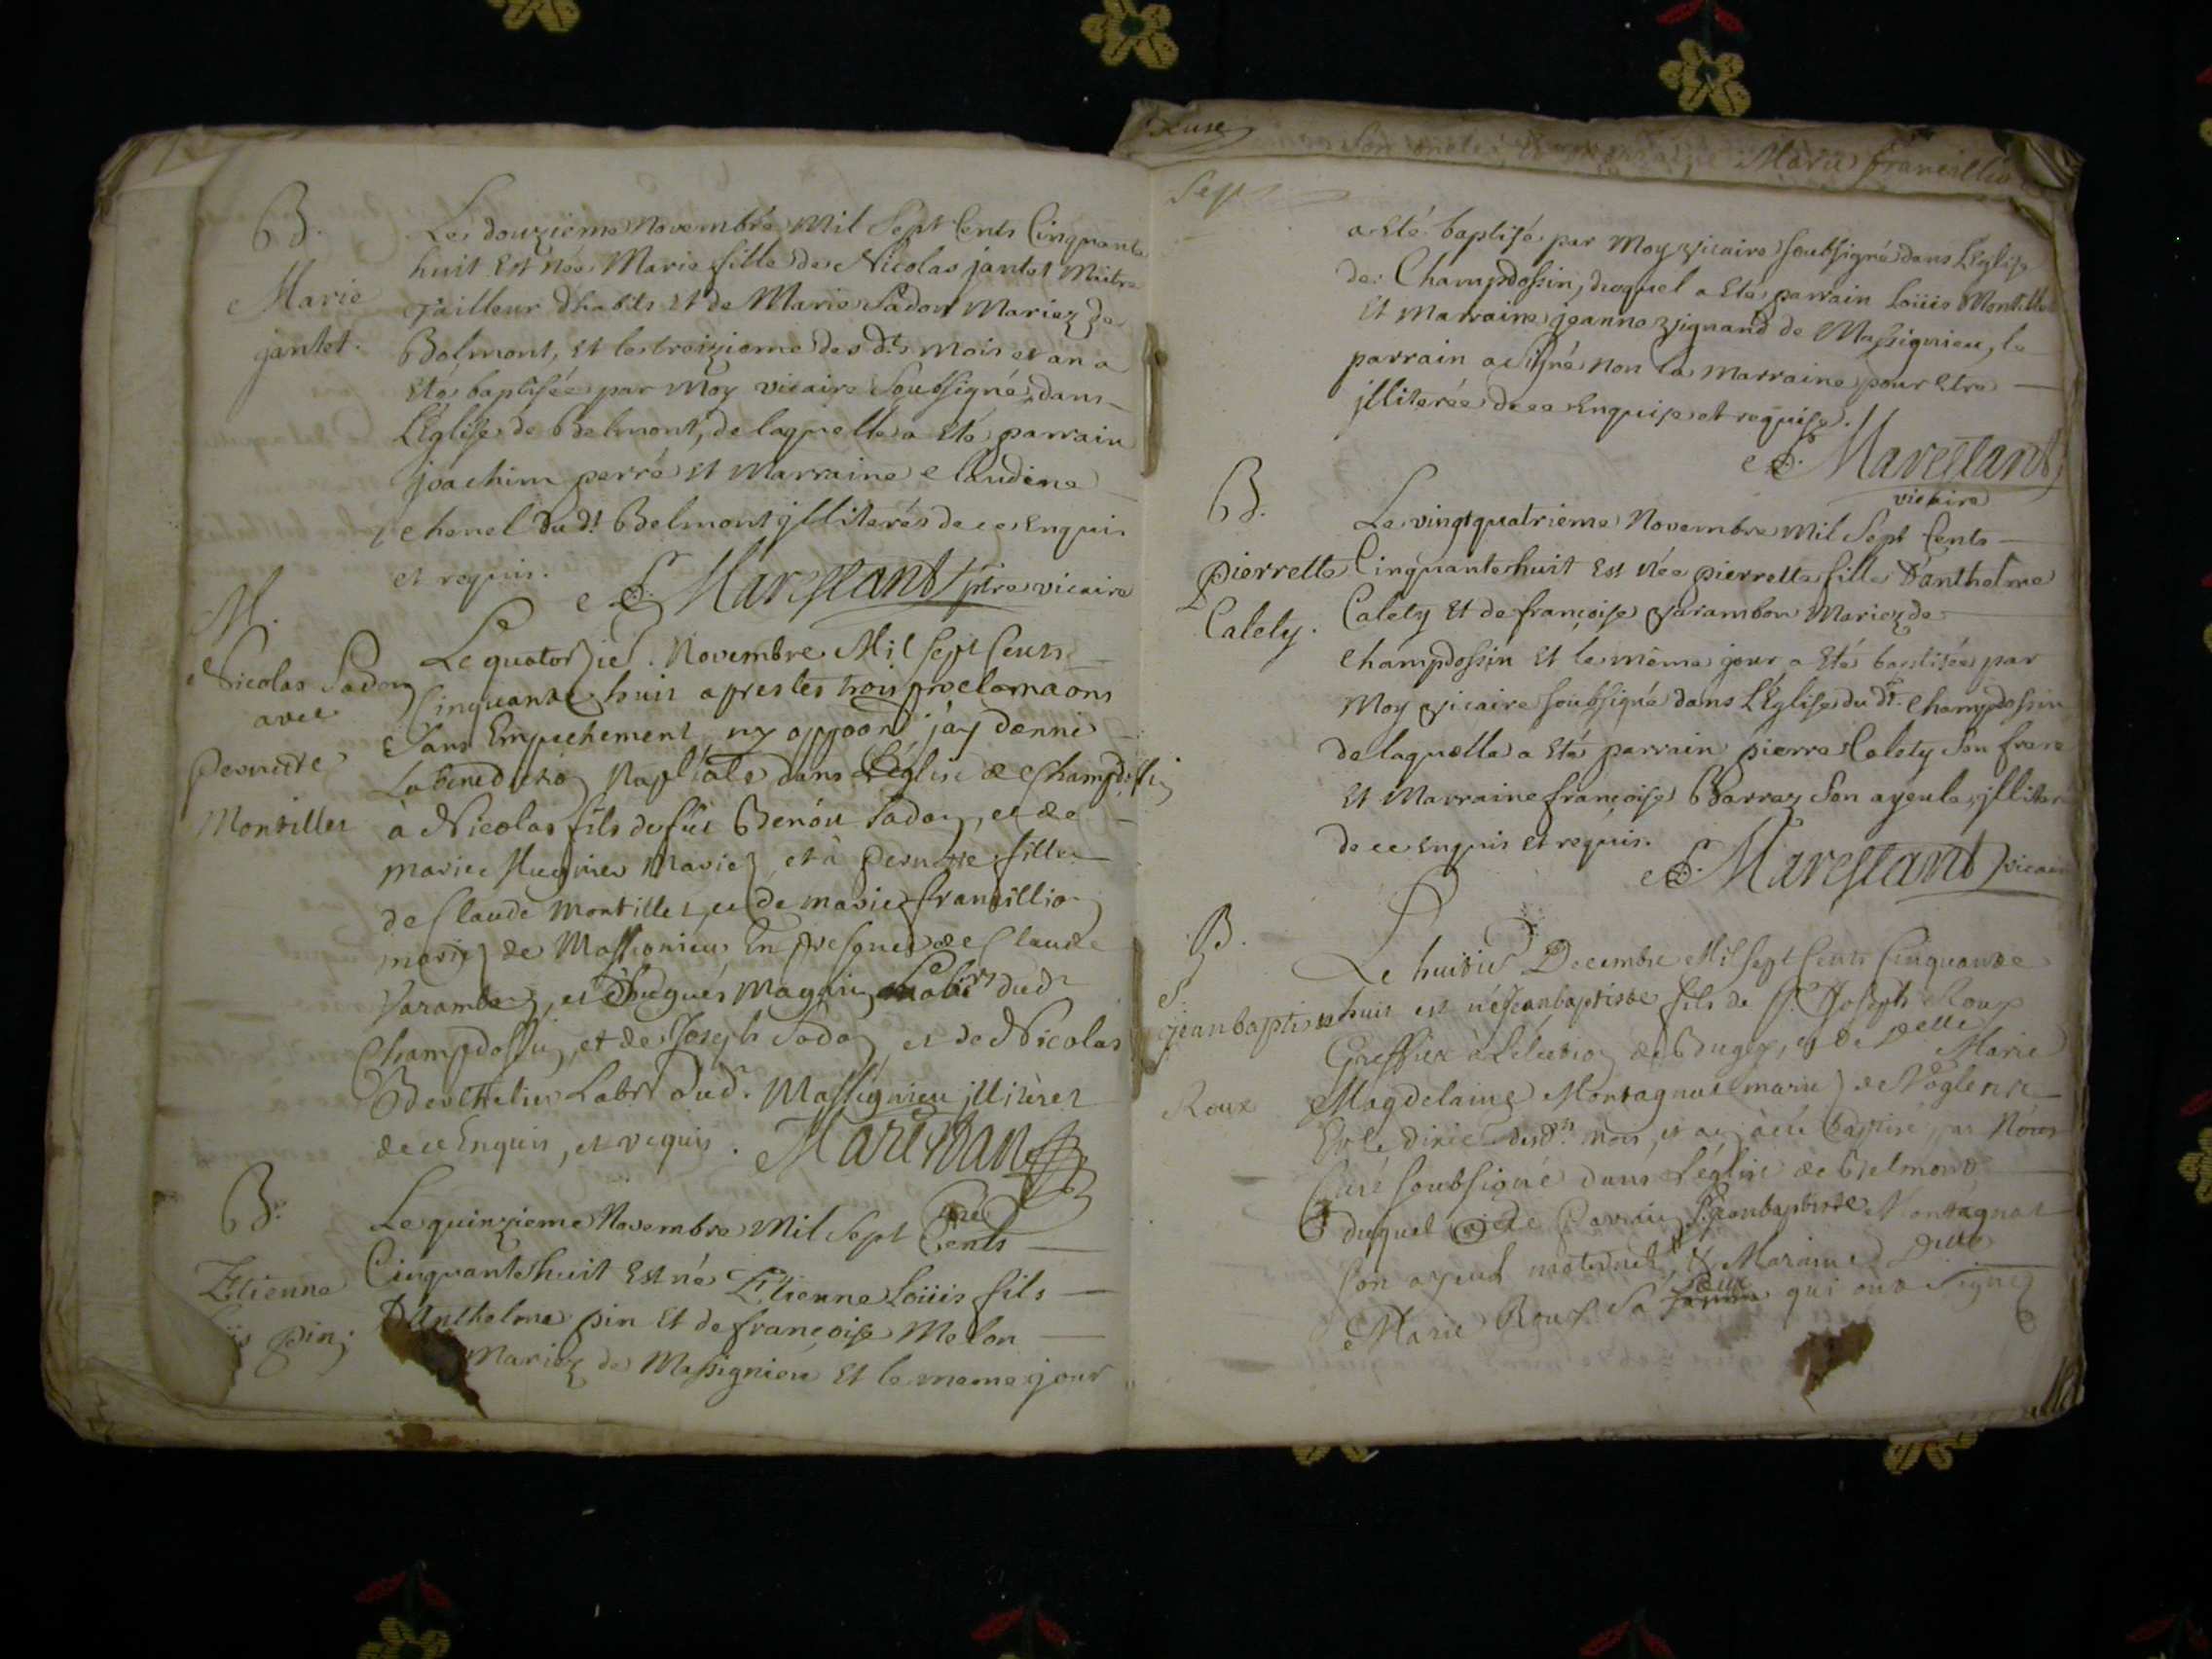 B.
Marie
jantet.
Le douzieme Novembre Mil Sept Cents Cinquante
huit Est née Marie fille de Nicolas jantet Maitre
Tailleur d'habits Et de Marie Sadon Mariez de
Belmont, Et le treizieme des dts mois et an a
Eté baptisée par Moy vicaire Soubsigné dans
L'Eglise de Belmont, de laquelle a Eté parrain
joachim perré Et Marraine Claudine
chenel du dt Belmont jlliterés de ce Enquis
et requis.
Marestant ptre vicaire
M.
Nicolas Sadon
avec
Pernette
Montillet
Le quatorzie. Novembre Mil Sept Cents
Cinquante huit apres les trois proclamaons
Sans Empechement ny oppoon j'ay donné
La benediction Nuptiale dans L'église de Champdossin
à Nicolas fils de fût Benoit Sadon, et de
marie Mugnier Mariez et à Pernette fille
de Claude Montillet et de marie francillion
mariez de Massignieu En presence de Claude
Varambon, et d'hugues Magnin Labrs dudt
Champdossin, et de Joseph Sadon et de Nicolas
Berthelier Labrs dud. Massignieu jlliterez
de ce Enquis, et requis. Marestan
Curé
B.
Etienne
Pin;
Le quinzieme Novembre Mil Sept Cents
Cinquante huit Est né Etienne Loüis fils
D'Anthelme pin Et de françoise Melon
Mariez de Massignieu Et le meme jour
Sept
a Eté baptisé par Moy vicaire Soubsigné dans L'Eglise
de Champdossin, duquel a Eté parrain Loüis Montillet
Et Marraine jeanne vignand de Massignieu, le
parrain a Signé Non la Marraine pour Etre
jlliterée de ce Enquise et requise.
Marestant
vicaire
B.
Pierrette
Calety.
Le vingtquatrieme Novembre Mil Sept Cents
Cinquante huit Est Née pierrette fille D'anthelme
Calety Et de françoise Varambon Mariez de
Champdossin Et le même jour a Eté baptisée par
Moy Vicaire Soubsigné dans L'Eglise du dt. Champdossin
de laquelle a Eté parrain pierre Calety Son frere
Et Marraine françoise Barraz Son ayeule, jlliter
de ce Enquis Et requis.
Marestant vicair
B.
S.
jean baptiste
Roux
Le huitie Decembre Mil Sept Cents Cinquante
huit est né Jean baptiste fils de Sr. Joseph Roux
Greffier à L'élection de Bugey, et de Delle Marie
Magdelaine Montagnat mariez de
Et le dixie desdts mois et an à été baptisé par Nous
Curé Soubsigné dans L'église de Belmont
duquel à eté Parrain Sr. Jeanbaptiste Montagnat
Son ayeul maternel, & Maraine Delle
Marie Roux Sa qui ont Signez